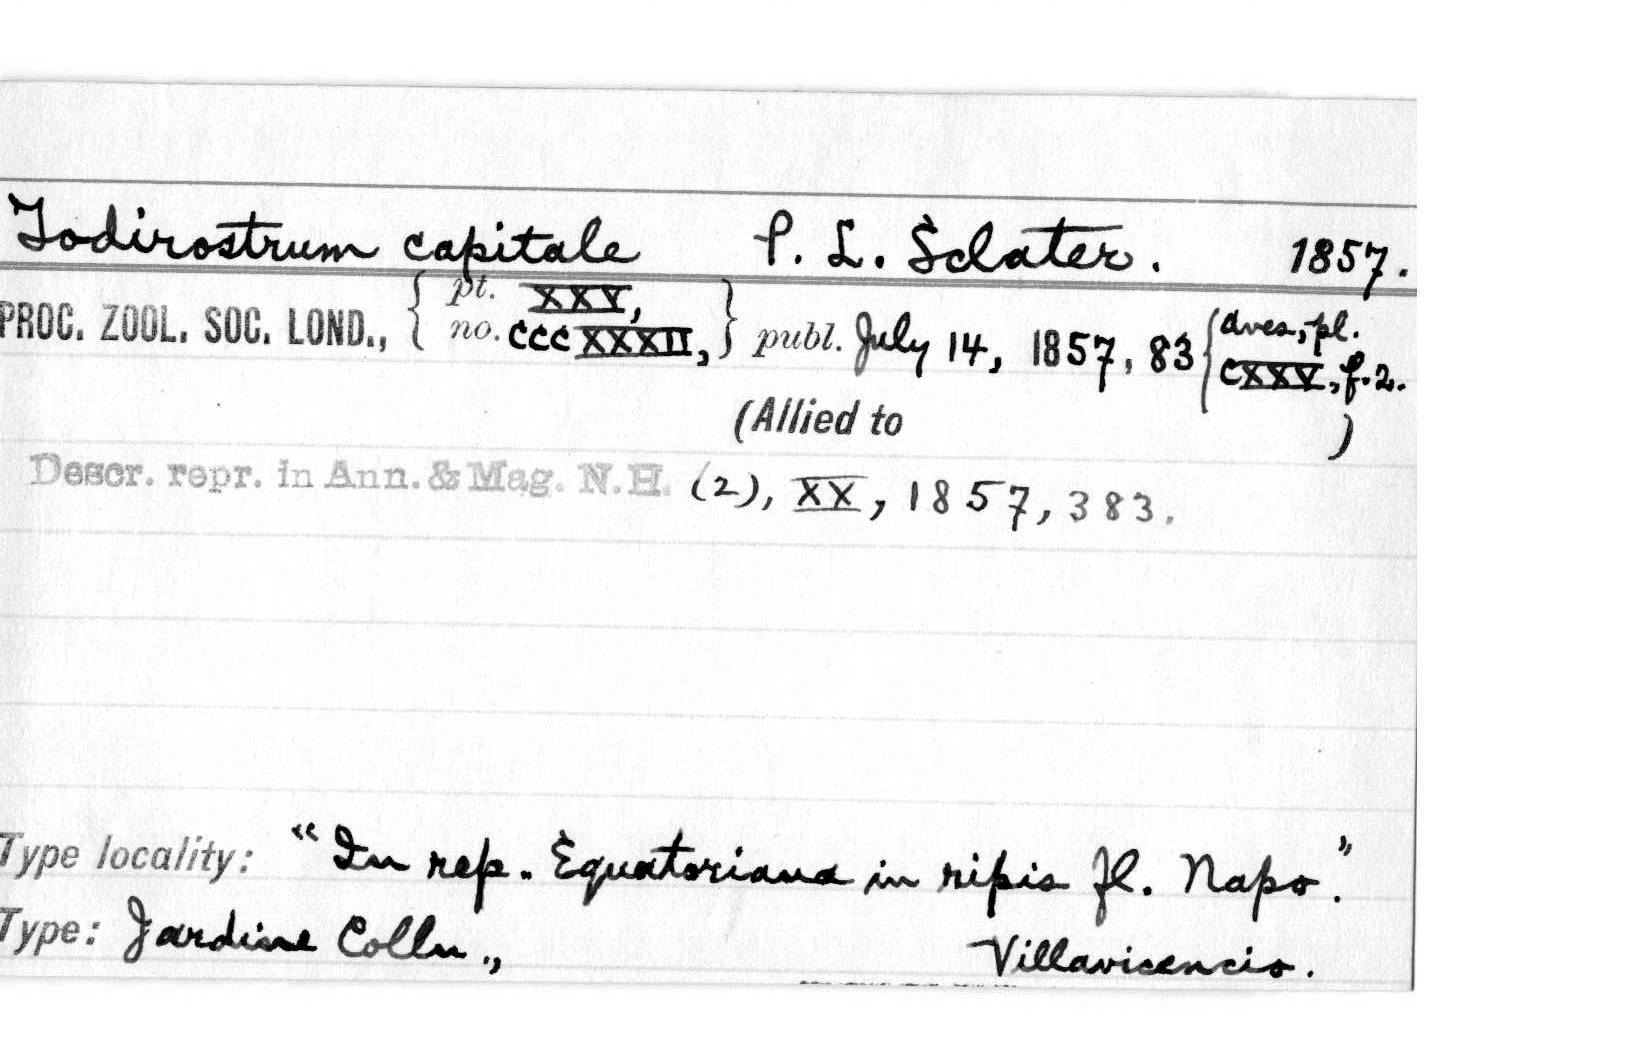 Todirostrum capitale P. L. Sclater. 1857.
PROC. ZOOL. SOC. LOND., { pt. XXV, no. CCCXXXII, } publ. July 14, 1857, 83 { Aves, pl. CXXV, f. 2.
(Allied to )
Descr. repr. in Ann. & Mag. N.H. (2), XX, 1857, 383.
Type locality: "In rep. Equatoriana in ripis fl. Napo."
Type: Jardine Colln., Villavicencio.